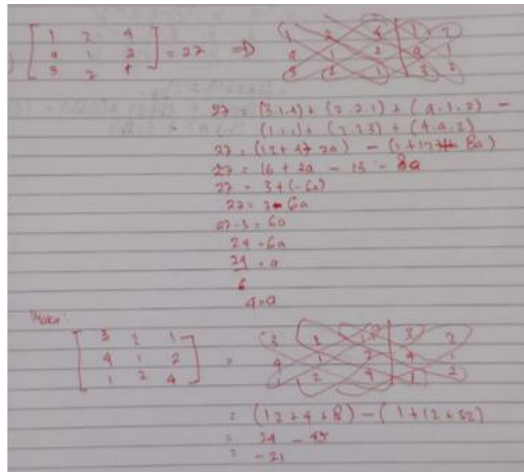 [1 2 4
a 1 2
3 2 1] = 27 ⇒ 1 2 4 | 1 2
a 1 2 | a 1
3 2 1 | 3 2
27 = (3.1.4) + (2.2.1) + (a.1.2) -
(1.1.1) + (2.2.3) + (4.a.2)
27 = (12+4+2a) - (1+12+8a)
27 = 16 + 2a - 13 - 8a
27 = 3+(-6a)
27 = 3-6a
27-3 = 6a
24 = 6a
24 = a
6
4=a
Maka:
[3 2 1
4 1 2
1 2 4] = 3 2 1 | 3 2
4 1 2 | 4 1
1 2 4 | 1 2
= (12+4+8) - (1+12+32)
= 24 - 45
= -21